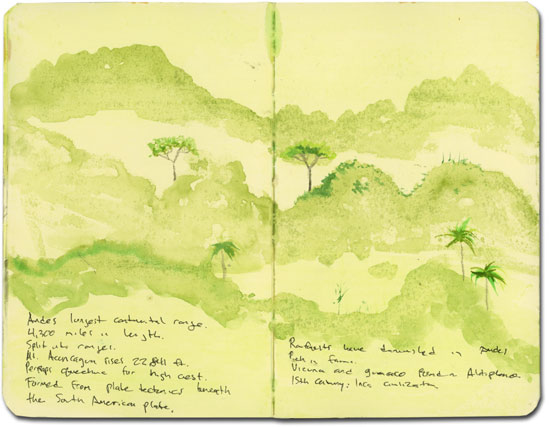 Andes longest continental range.
4,300 miles in length.
Split into ranges.
Mt. Aconcagua rises 22,841 ft.
Perhaps quechua for high crest.
Formed from plate tectonics beneath
the South American plate.
Rainforests have diminished in Andes
Rich in fauna.
Vicuna and guanaco found in Altiplano.
15th century: Inca civilization